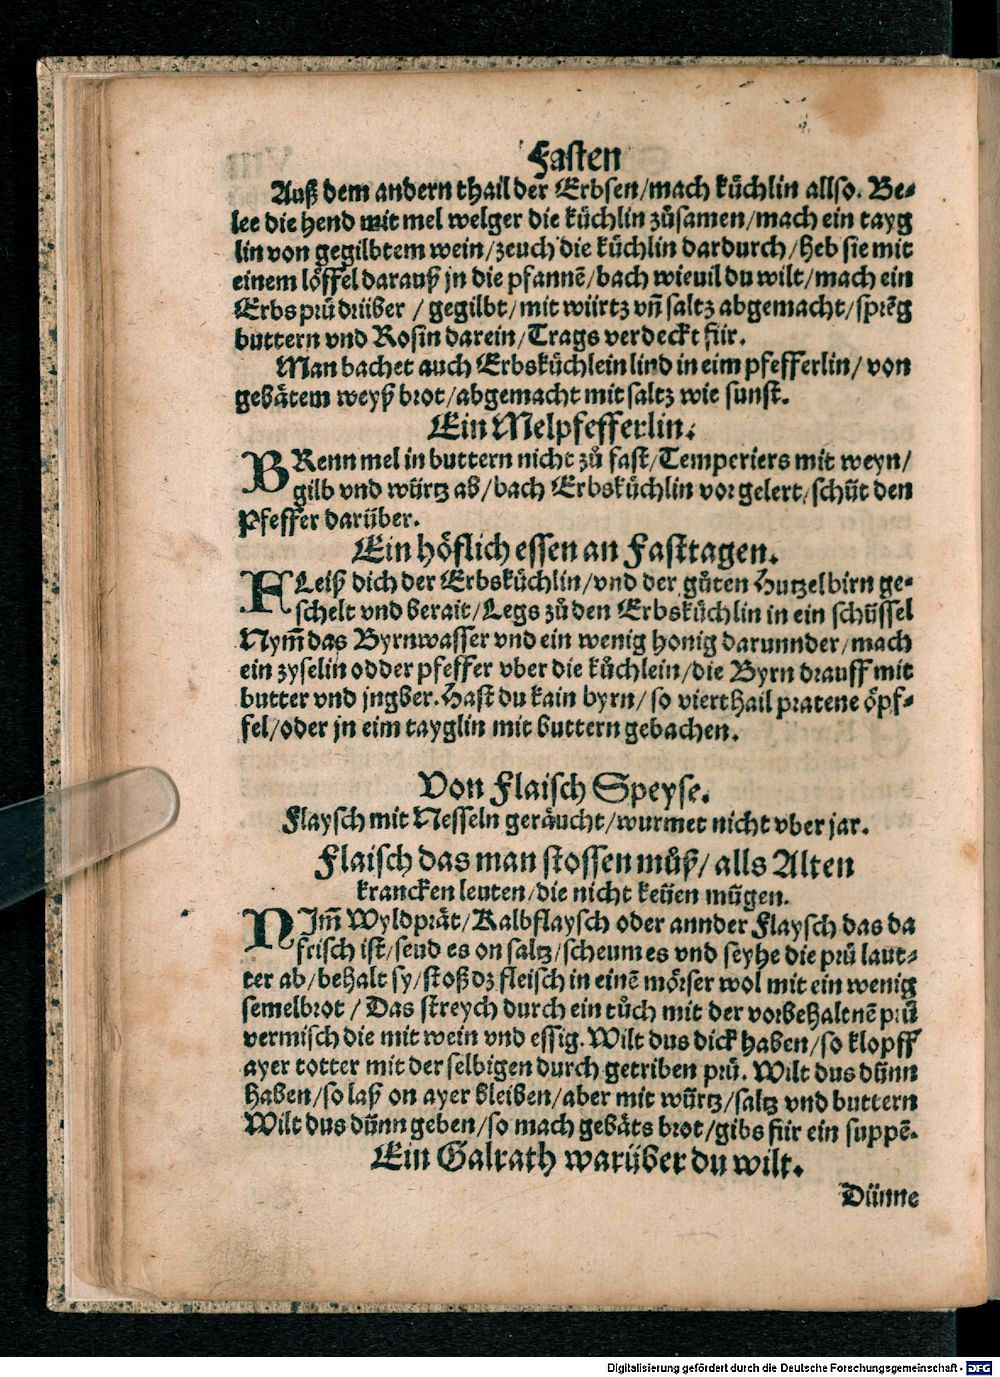 Fasten
Auß dem andern thail der Erbsen/mach küchlin allso. Be⸗
lee die hend mit mel welger die küchlin zůsamen/mach ein tayg
lin von gegilbtem wein/zeuch die küchlin dardurch/heb sie mit
einem löffel darauß jn die pfannē/bach wieuil du wilt/mach ein
Erbs prů drüber / gegilbt/mit würtz vñ saltz abgemacht/sprēg
buttern vnd Rosin darein/Trags verdeckt für.
Man bachet auch Erbsküchlein lind in eim pfefferlin/ von
gebätem weyß brot/abgemacht mit saltz wie sunst.
Ein Melpfefferlin.
BRenn mel in buttern nicht zů fast/Temperiers mit weyn/
gilb vnd würtz ab/bach Erbsküchlin vor gelert/schüt den
Pfeffer darüber.
Ein höflich essen an Fasttagen.
FLeiß dich der Erbsküchlin/vnd der gůten Hutzelbirn ge⸗
schelt vnd berait/Legs zů den Erbsküchlin in ein schüssel
Nym̃ das Byrnwasser vnd ein wenig honig darunnder/mach
ein zyselin odder pfeffer vber die küchlein/die Byrn drauff mit
butter vnd jngber. Hast du kain byrn/ so vierthail pratene öpf⸗
fel/oder jn eim tayglin mit buttern gebachen.
Von Flaisch Speyse.
Flaysch mit Nesseln geräucht/wurmet nicht vber jar.
Flaisch das man stossen můß/ alls Alten
krancken leuten/die nicht keüen mügen.
NIm̃ Wyldprät/Kalbflaysch oder annder Flaysch das da
frisch ist/seud es on saltz/scheum es vnd seyhe die prů laut⸗
ter ab/behalt sy/stoß dz fleisch in einē mörser wol mit ein wenig
semelbrot / Das streych durch ein tůch mit der vorbehaltnē prů
vermisch die mit wein vnd essig. Wilt dus dick haben/so klopff
ayer totter mit der selbigen durch getriben prů. Wilt dus dünn
haben/so laß on ayer bleiben/aber mit würtz/saltz vnd buttern
Wilt dus dünn geben/so mach gebäts brot/gibs für ein suppē.
Ein Galrath warüber du wilt.
Dünne
Digitalisierung gefördert durch die Deutsche Forschungsgemeinschaft - DFG